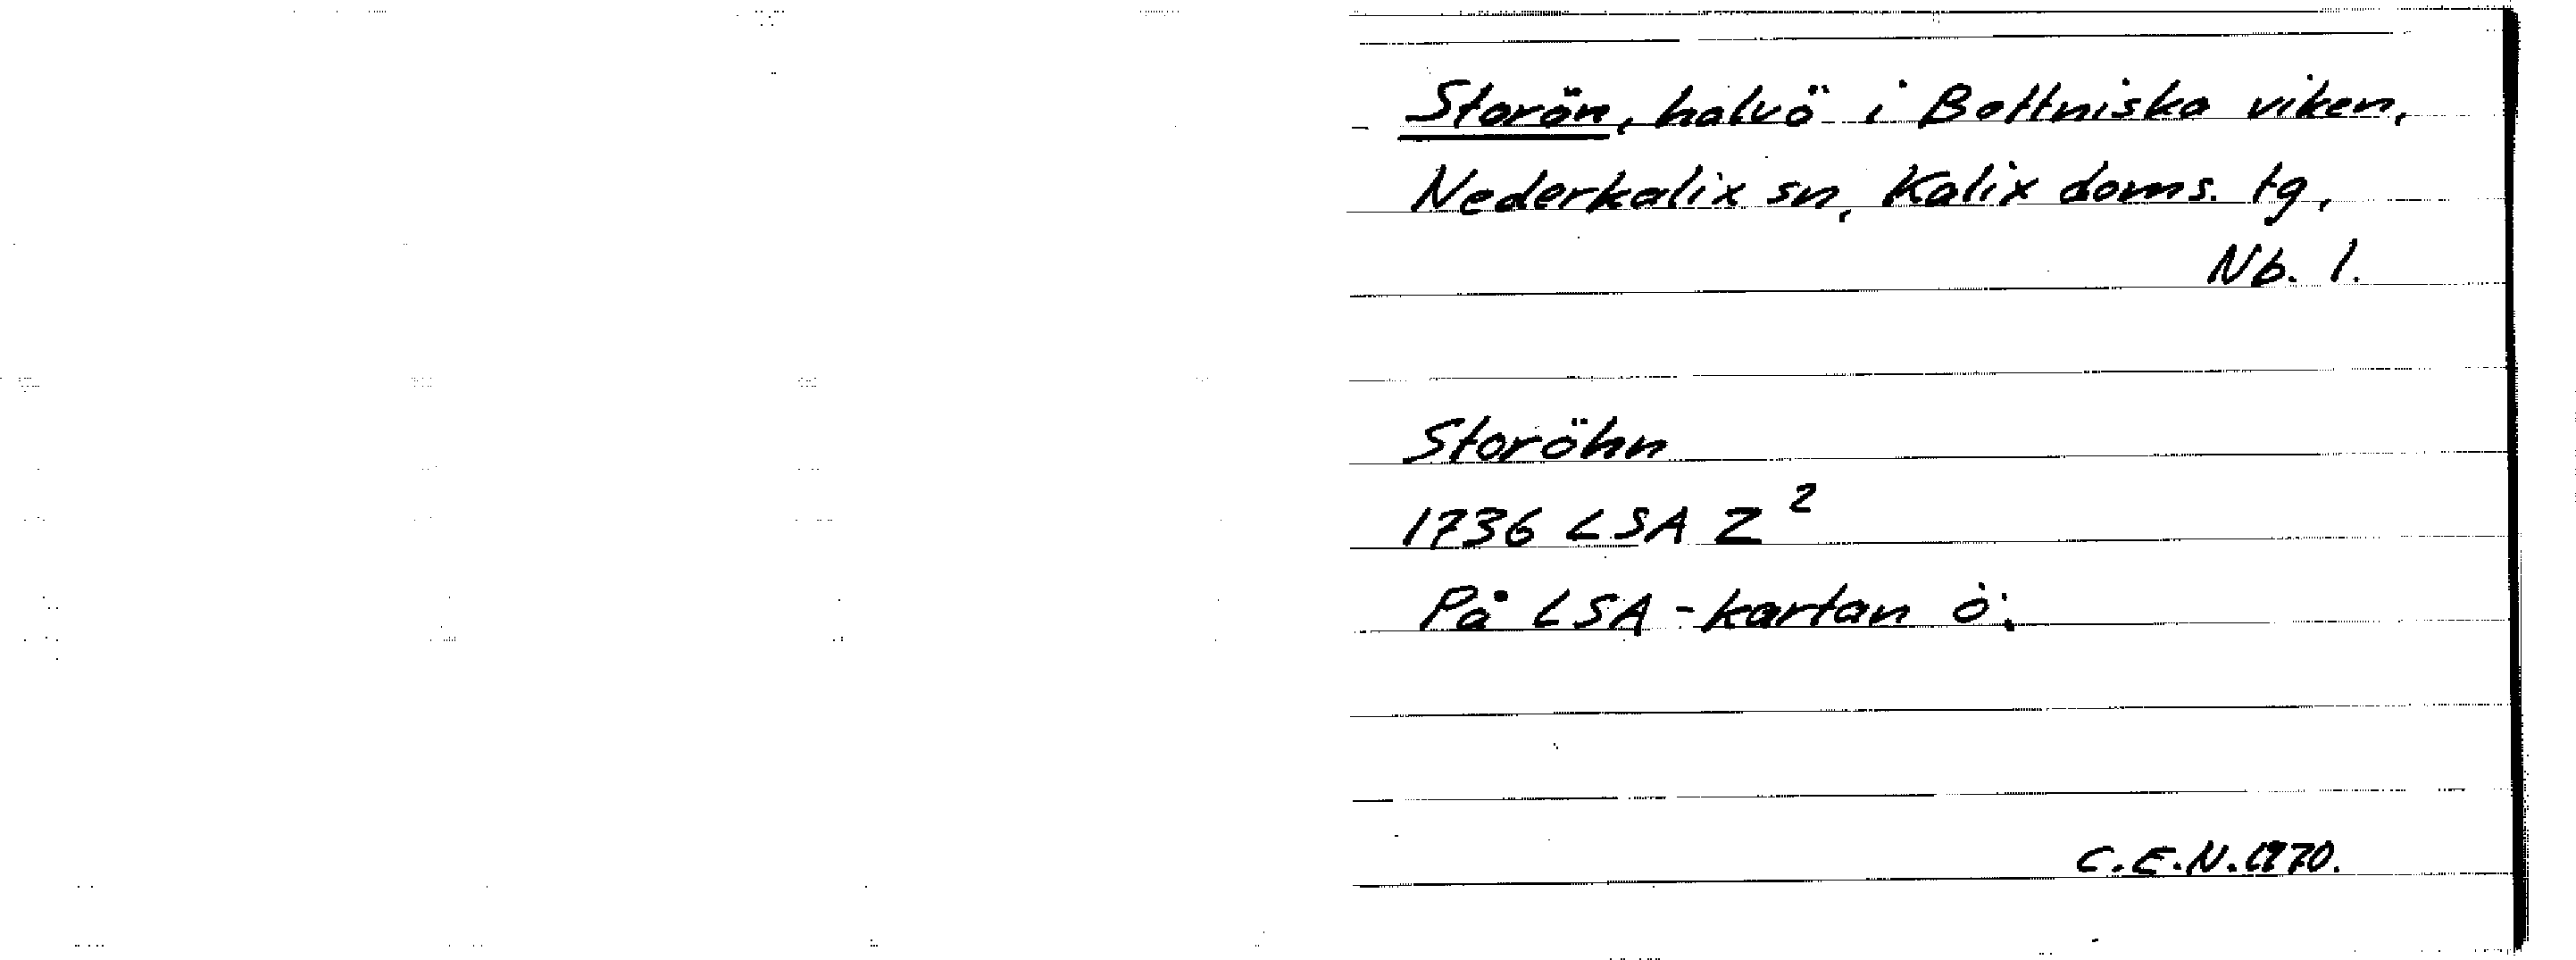 Storön, halvö i Bottniska viken,
Nederkalix sn, Kalix doms. tg,
Nb. l.
Storöhn
1736 LSA Z²
På LSA-kartan ö.
C.E.N. 1970.